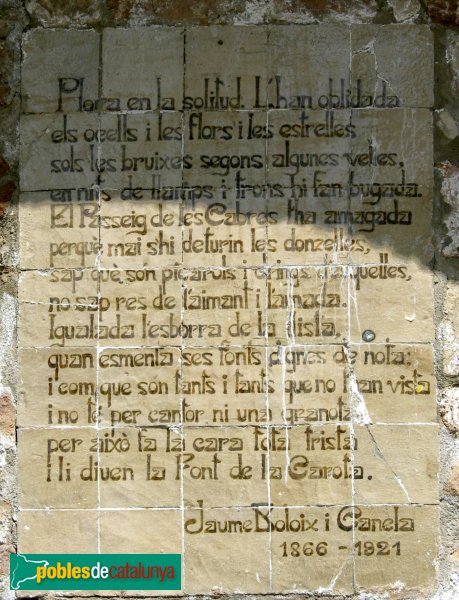 Plora en la solitud. L'han oblidada
els ocells i les flors i les estrelles
sols les bruixes segons algunes velles,
en nits de llamps i trons hi fan bugada.
El Passeig de les Cabres l'ha amagada
perquè mai s'hi deturin les donzelles,
sap què són picarols i drings d'aquelles,
no sap res de l'aimant i l'aimada.
Igualada l'esborra de la llista,
quan esmenta ses fonts dignes de nota;
i com que son tants i tants que no l'han vista
i no té per cantor ni una granota
per això fa la cara tota trista
i li diuen la Font de la Carota.
Jaume Boloix i Canela
1866 - 1921
poblesdecatalunya